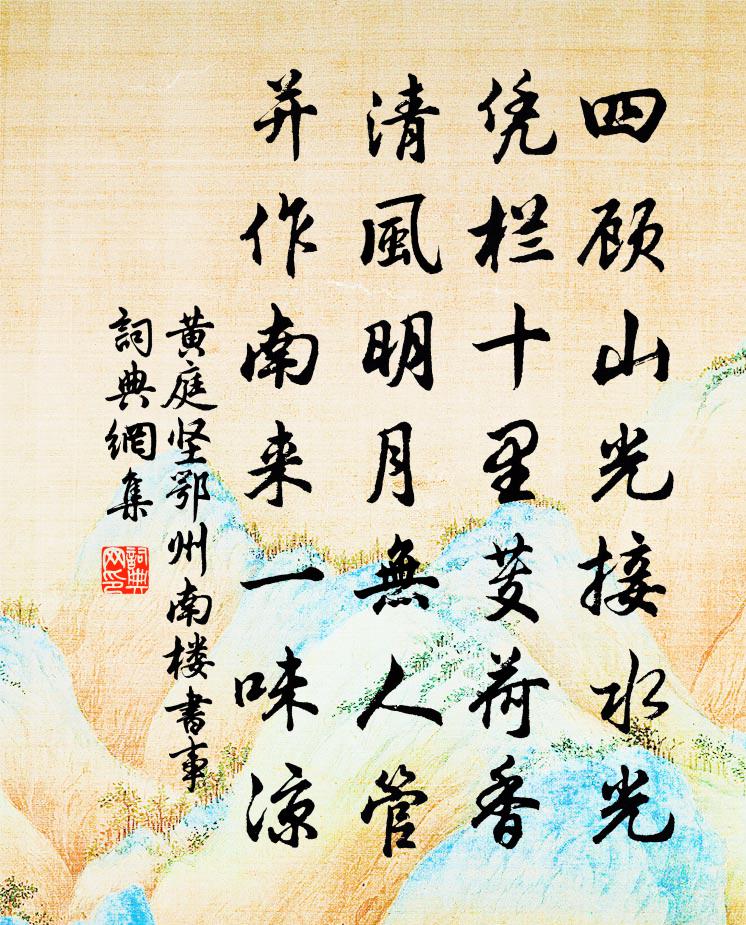 四顾山光接水光
凭栏十里芰荷香
清風明月無人管
并作南来一味凉
黄庭坚鄂州南楼書事
詞典網集
詞典网印